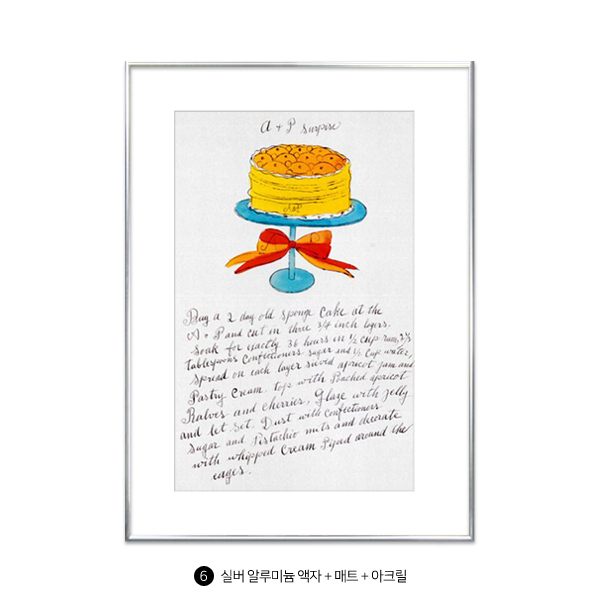 A + P Surprise
A&P
Buy a 2 day old sponge Cake at the
A + P and cut in three 3/4 inch layers.
Soak for exactly 36 hours in 1/2 cup rum, 2 1/2
tablespoons Confectioners sugar and 1/3 Cup water,
Spread on each layer sieved apricot jam and
Pastry Cream. top with Poached apricot
Halves and cherries, Glaze with jelly
and let Set. Dust with Confectioners
Sugar and Pistachio nuts and decorate
with whipped Cream Piped around the
edges.
6 실버 알루미늄 액자 + 매트 + 아크릴